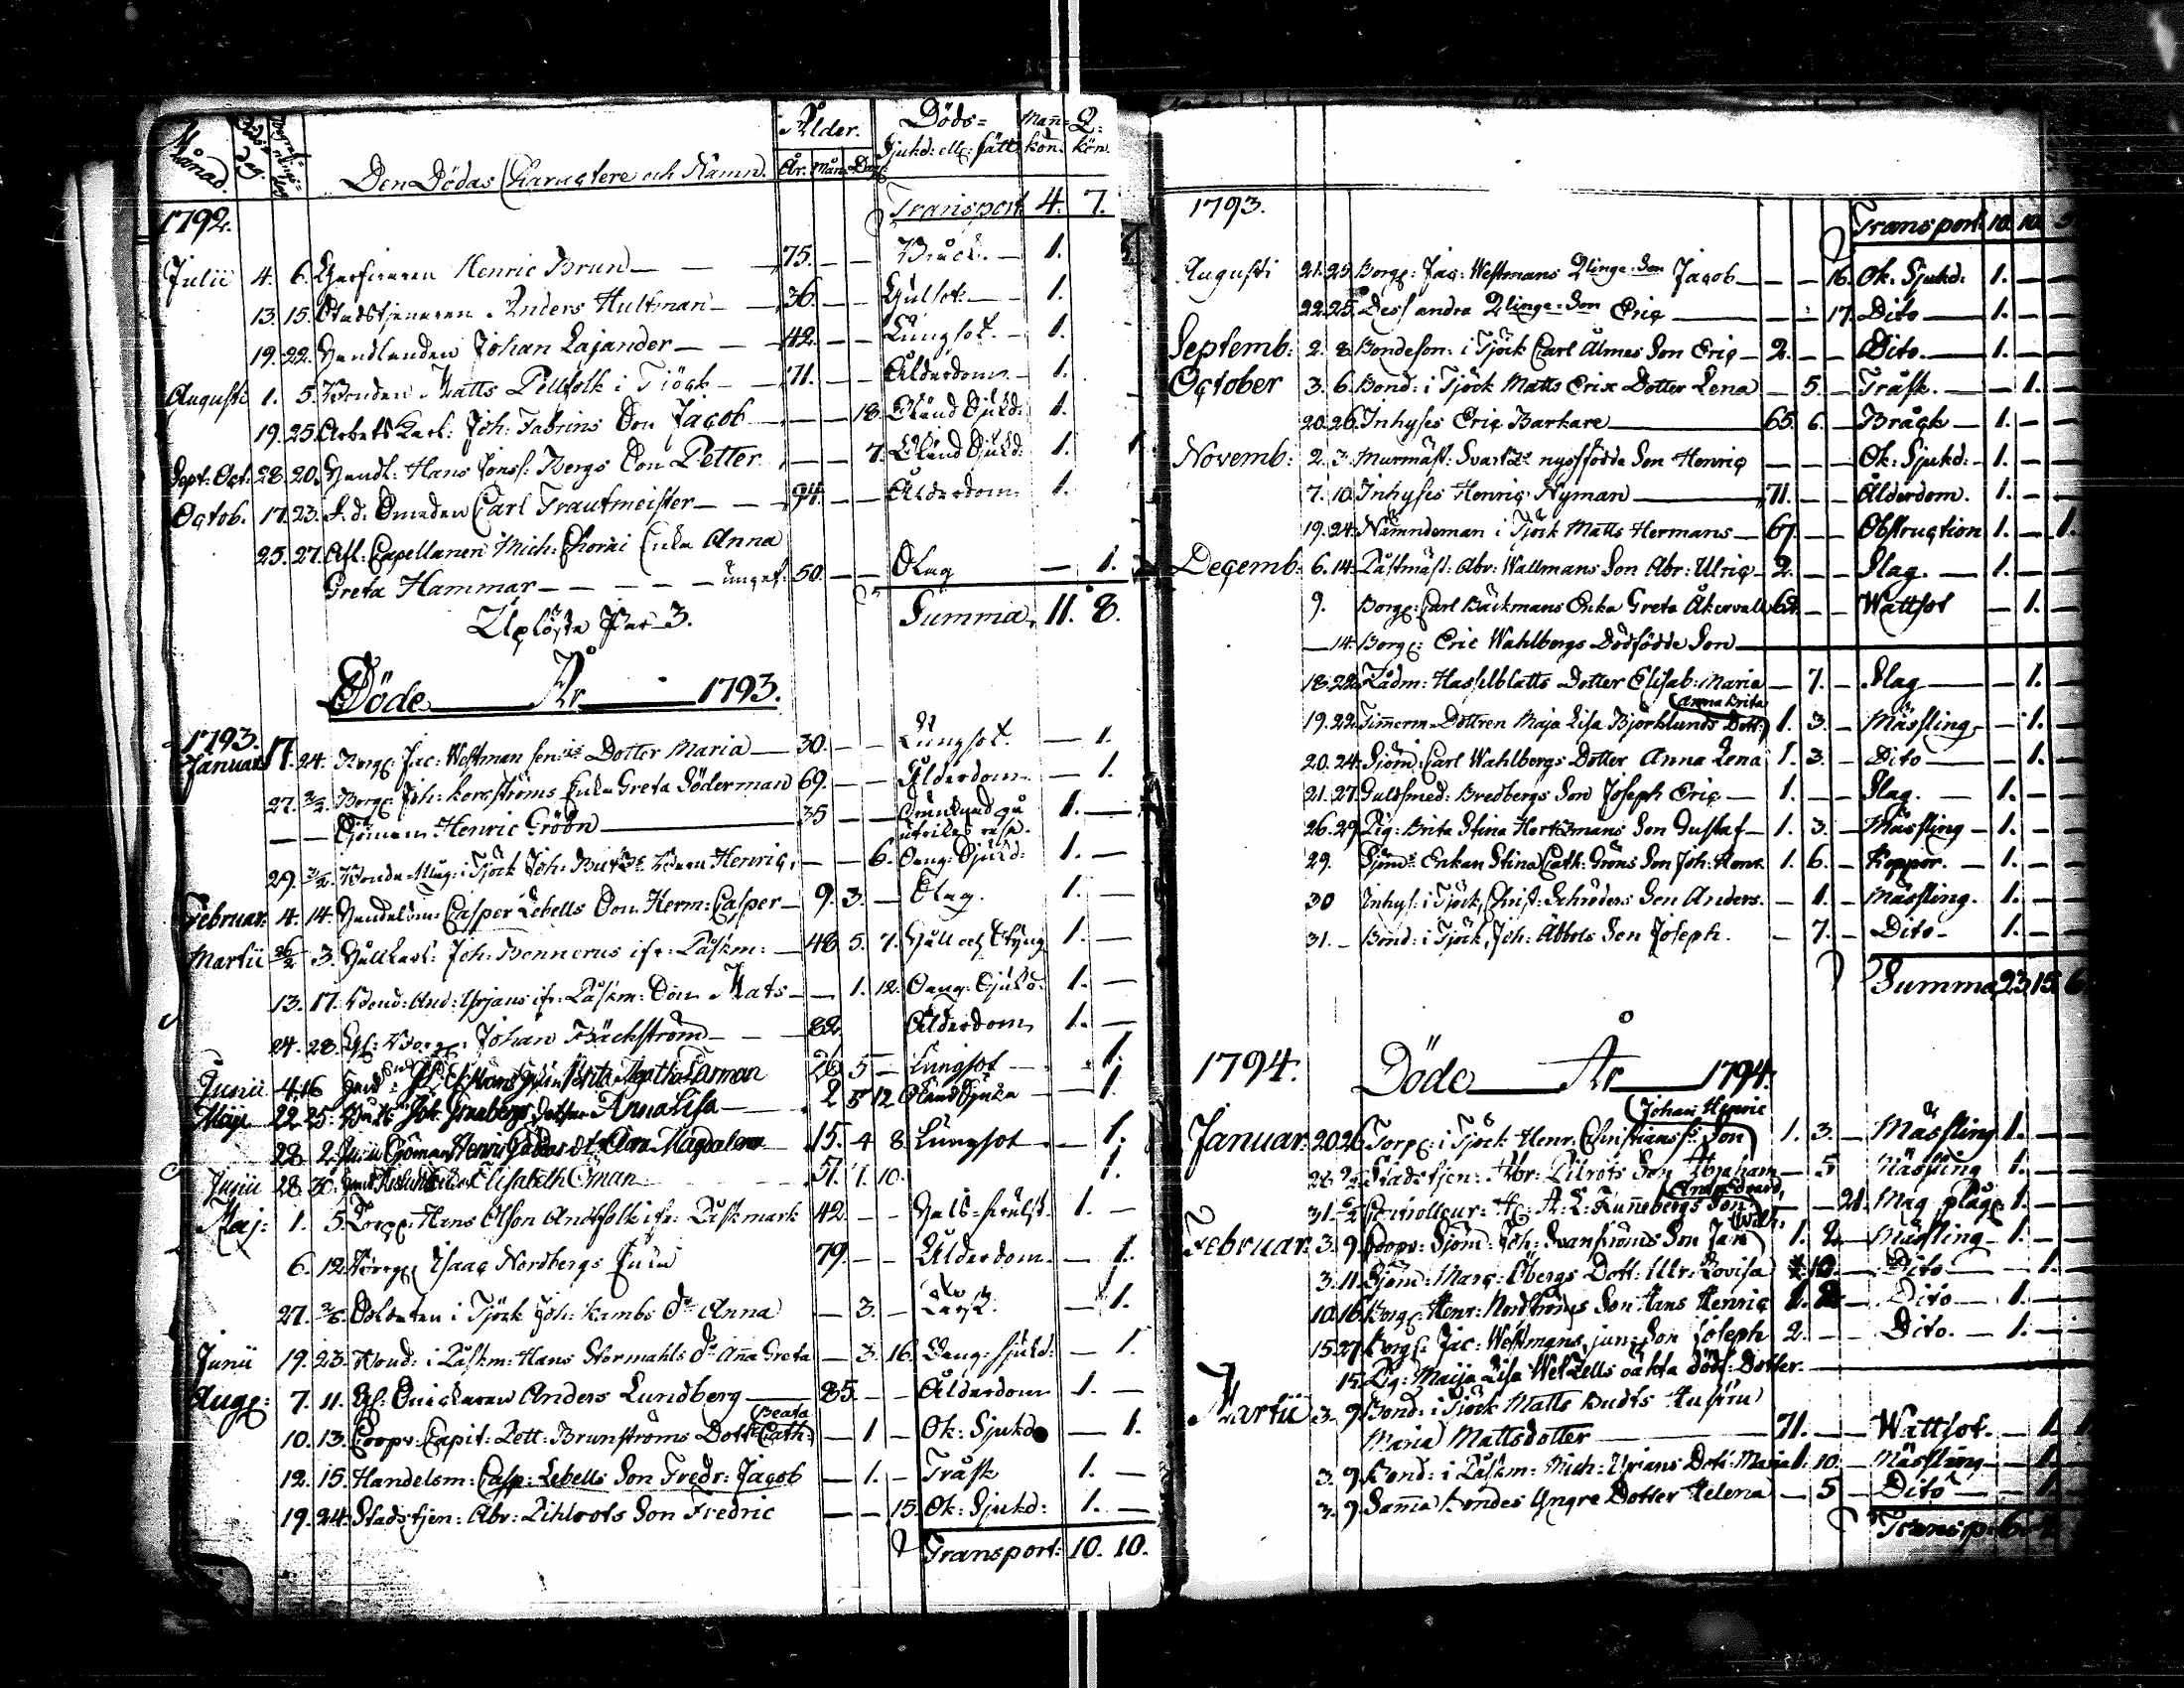 Månad. Döds- dag. Begrafnings- dag Den Dödas Charactere och Namn. Ålder. År. Mån. Dag. Döds= Sjukd: ell: sätt Mañ= kön. Q: kön.
1792. Transport 4. 7.
Julii 4. 6. Henric Brun 75. — — Bråck. 1.
13. 15. Stadstjenaren Anders Hultman 36. — — Gulsot. 1.
19. 22. Handlanden Johan Lajander 42. — — Lungsot. 1.
Augusti 1. 5. Bonden Matts Pellfolk i Tiöck 71. — — Ålderdom. 1.
19. 25. Arbets Karl: Joh: Fabrins Son Jacob — — 18. Okänd Sjukd: 1.
Sept: Oct: 28. 20. Handl: Hans Jonss: Bergs Son Petter — — 7. Okänd Sjukd: 1.
Octob. 17. 23. F. d. Smeden Carl Trautmeister 94. — — Ålderdom. 1.
25. 27. Afl: Capellanen Mich: Choræi Enka Anna
Greta Hammar — — — — ungef: 50. — — Slag — 1.
Uplöste Par 3. Summa. 11. 8.
Döde År 1793.
1793.
Januar 17. 24. Borg: Jac: Westman senis Dotter Maria 30. — — Lungsot. — 1.
27. 3/2. Borg: Joh: Enka Greta Söderman 69. — — Ålderdom — 1.
— — Sjöman Henric Gröön 35 — — Drunknad på 1. —
utrikes resa.
29. 3/2. Bonde-Mag: i Tjöck Joh: Henric, — — 6. Sjukd: 1. —
Februar: 4. 14. Handelsm: Casper Lebells Son Herm: Casper 9. 3. — Slag. 1. —
Martii 26/2 3. Joh: Bonnerus ifr: Låskm: 48 5. 7. Håll och Styng 1. —
13. 17. Bond: And: Yrjans ifr: Låskm: Son Mats — 1. 12. Sjukd: 1. —
24. 28. Gl: Borg: Johan Bäckström 82. Ålderdom 1. —
Junii 4 16 Brita Agatha Carman 26 5 — Lungsot — 1.
Maji 22 25. Joh: dotter Anna Lisa 2 5 12 Okänd Sjuka — 1.
28 2. Junii Sjöman Henric Magdalena 15. 4 8. Lungsot — 1.
Junii 28 30. Elisabeth Öman 51. 1. 10. 1.
Maj: 1. 5. Torp: Hans Olson Andfolk ifr: Låskmark 42. — — 1. —
6. 12. Borg: Isaac Nordbergs Enka 79. — — Ålderdom. — 1.
27. 2/6. Soldaten i Tjöck Joh: Kambs dr Anna — 3. — — 1.
Junii 19. 23. Bond: i Låskm: Hans Stormahls dr Aña Greta — 3. 16. sjukd: — 1.
Aug: 7. 11. Gl: Snickaren Anders Lundberg 85. — — Ålderdom 1. —
10. 13. Coopv: Capit: Pett: Brunströms Dott: Beata Cath: — 1 — Ok: Sjukd — 1.
12. 15. Handelsm: Casp: Lebells Son Fredr: Jacob — 1. — Tråsk 1. —
19. 24. Stadstjen: Abr: Pihlroots Son Fredric — — 15. Ok: Sjukd: 1. —
Transport: 10. 10.
1793. Transport 10. 10.
Augusti 21. 25. Borg: Jac: Westmans Qlinge-Son Jacob — — 16. Ok: Sjukd: 1. —
22. 25. Dess andra Qlinge-Son Eric — — 17. Dito 1. —
Septemb: 2. 8. Bondeson: i Tjöck Carl Almes Son Eric 2. — — Dito. 1. —
October 3. 6. Bond: i Tjöck Matts Erix Dotter Lena — 5. — Tråsk. — 1.
20. 26. Inhyses Eric Barkare 65. 6. — Bråck 1. —
Novemb: 2. 3. Murmäst: nyssfödde Son Henric — — — Ok: Sjukd: 1. —
7. 10. Inhyses Henric Nyman 71. — — Ålderdom. 1. —
19. 24. Nämndeman i Tjöck Matts Hermans 67. — — Obstruction 1. — 1.
Decemb: 6. 14. Postmäst: Abr: Wallmans Son Abr: Ulric 2. — — Slag. 1. —
9. Borg: Carl Bäckmans Enka Greta Åkervall 62. — — Wattsot — 1.
— 14. Borg: Eric Wahlbergs Dödfödde Son
18. 22. Rådm: Hasselblatts Dotter Elisab: Maria — 7. — Slag — 1.
19. 22. Timerm-Dottren Maja Lisa Björklunds Dott: Anna Brita 1. 3. — Mässling — 1.
20. 24. Sjöm: Carl Wahlbergs Dotter Anna Lena 1. 3. — Dito — 1.
21. 27. Guldsmed: Bredbergs Son Joseph Eric 1. — — Slag. 1. —
26. 29. Pig: Brita Stina Hertzmans Son Gustaf 1. 3. — Mässling 1. —
29. Sjöms: Enkan Stina Cath: Gröns Son Joh: Henr. 1. 6. — Koppor. 1. —
30 Inhys: i Tjöck, Christ: Schröders Son Anders. — 1. — Mässling. 1. —
31. — Bond: i Tjöck, Joh: Äbbots Son Joseph. — 7. — Dito 1. —
Summa 23. 15. 6
1794. Döde År 1794.
Januar: 20. 26. Torp: i Tjöck Henr: Christianss: Son Johan Henric 1. 3. — Mässling 1. —
28. 2/2. Stadstjen: Abr: Pilrots Son Abraham — 5 Mässling 1. —
31. 2/2 A: L: Runebergs Son — — 21. Mag plåg: 1. —
Februar: 3. 9. Coopv: Sjöm: Joh: Svanströms Son Jan Wilh: 1. 2. — Mässling 1. —
3. 11. Sjöm: Marc: Öbergs Dott: Ulr: Lovisa 10. — Dito — 1.
10. 16. Borg: Henr: Nordströms Son Hans Henric 1. — Dito 1. —
15. 27. Borg: Jac: Westmans jun: Son Joseph 2. — — Dito. 1. —
15. Pig: Maija Lisa Wetzells oäkta dödf: Dotter.
Martii 3. 9. Bond: i Tjöck Matts Budts Hustru
Maria Mattsdotter 71. — — Wattsot. — 1.
3. 9. Bond: i Låskm: Mich: Yrians Dott: Maria 1. 10. — Mässling — 1.
3. 9. Sam̃a Bondes Yngre Dotter Helena — 5 — Dito — 1.
Transp: